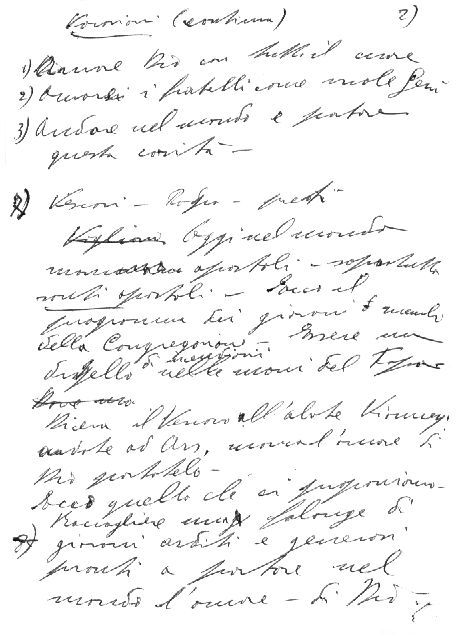 Vocazioni (continua) 2)
1) Amare Dio con tutto il cuore
2) Amarci i fratelli come vuole Gesù
3) Andare nel mondo e portare
questa carità -
Vescovi - Rogo - preti
Vogliono Oggi nel mondo
mancano apostoli - soprattutto
santi apostoli - Ecco il
programma dei giovani e membri
della Congregazione - Essere un
drappello di nelle mani del
Dove una
Diceva il Vescovo all'abate Vianney
andate ad Ars, manca l'amore di
Dio portatelo -
Ecco quello che ci proponiamo -
Raccogliere una falange di
giovani arditi e generosi
pronti a portare nel
mondo l'amore - di Dio -